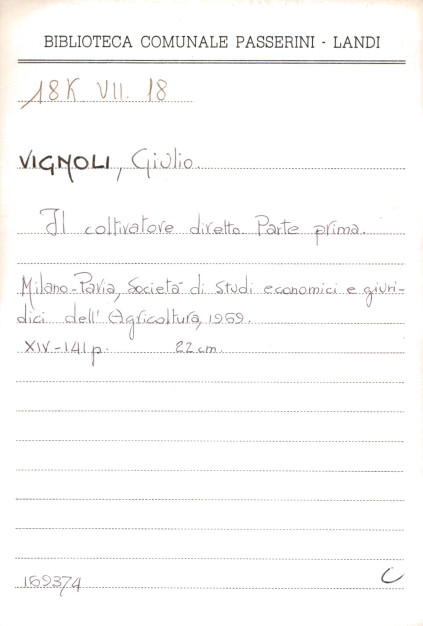 BIBLIOTECA COMUNALE PASSERINI - LANDI
18K VII. 18
VIGNOLI, Giulio.
Il coltivatore diretto. Parte prima.
Milano-Pavia, Società di Studi economici e giuri-
dici dell' Agricoltura, 1969.
XIV-141 p. 22 cm.
169374
C